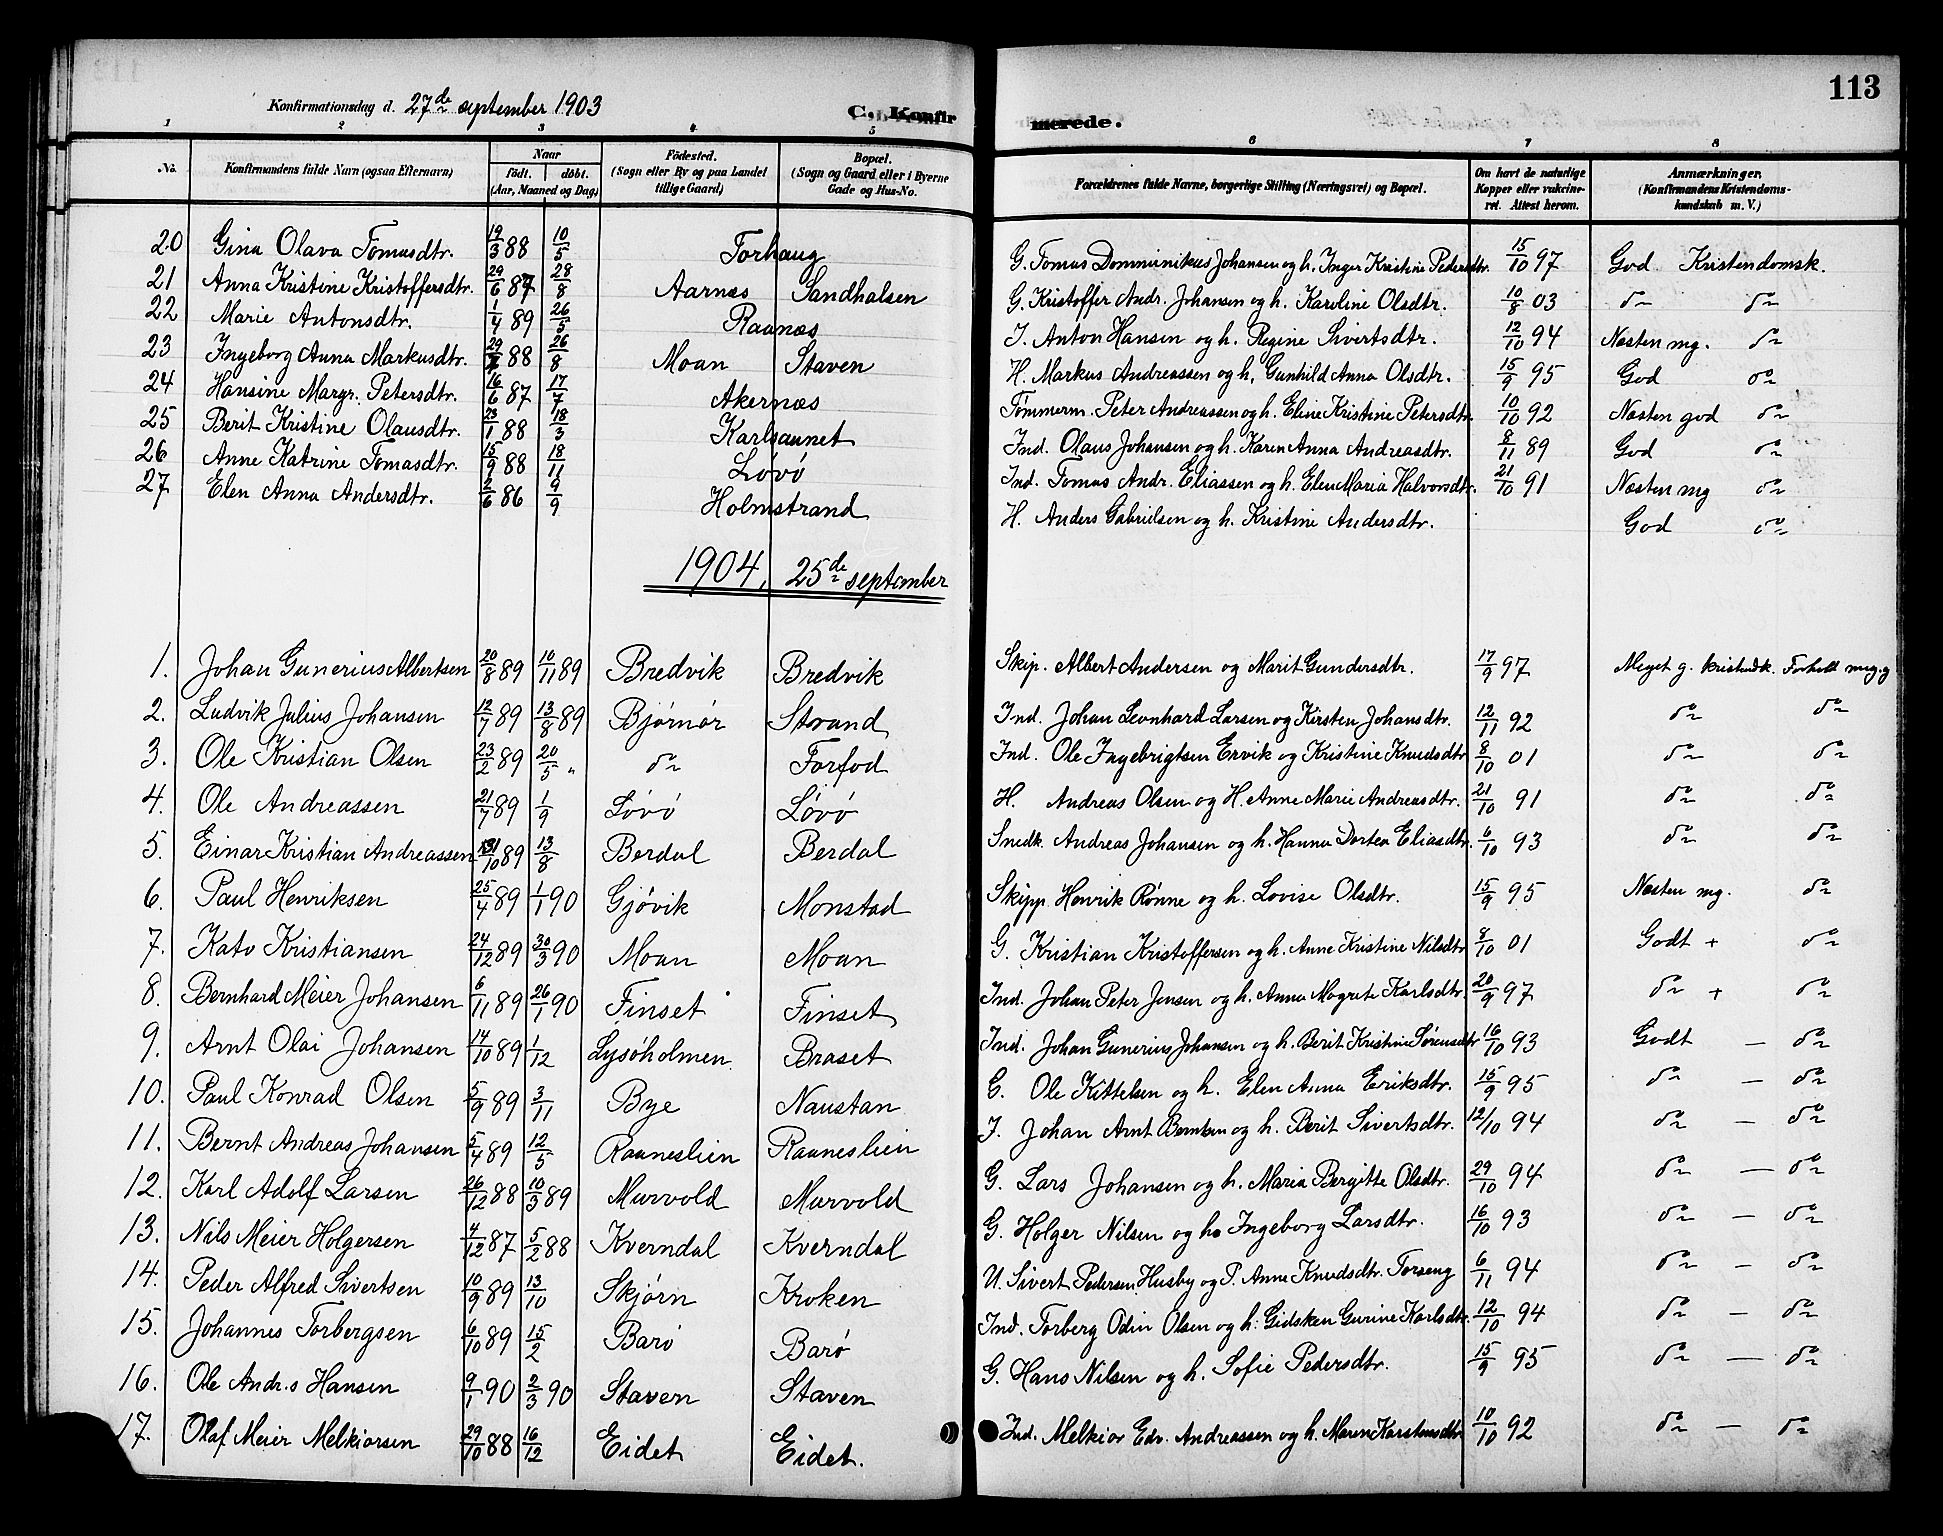 Konfirmationsdag d. 27de september 1903 C. Konfirmerede. 113
1 2 3 4 5 6 7 8
No. Konfirmandens fulde Navn (ogsaa Efternavn) Naar født. døbt. (Aar, Maaned og Dag) Fødested. (Sogn eller By og paa Landet tillige Gaard) Bopæl. (Sogn og Gaard eller i Byerne Gade og Hus-No. Forældrenes fulde Navne, borgerlige Stilling (Næringsvei) og Bopæl. Om havt de naturlige Kopper eller vakcineret. Attest herom. Anmærkninger. (Konfirmandens Kristendomskundskab m. V.)
20 Gina Olava Tomasdtr. 19/3 88 10/5 Forhaug G. Tomas Domminikus Johansen og h. Inger Kristine Pedersdtr. 15/10 97 God Kristendomsk.
21 Anna Kristine Kristoffersdtr. 29/6 87 28/8 Aarnæs Sandhalsen G. Kristoffer Andr. Johansen og h. Karoline Olsdtr. 10/8 03 do do
22 Marie Antonsdtr. 1/4 89 26/5 Raanæs I. Anton Hansen og h. Regine Sivertsdtr. 12/10 94 Næsten mg. do
23 Ingeborg Anna Markusdtr. 29/7 88 26/8 Moan Staven H. Markus Andreassen og h. Gunhild Anna Olsdtr. 15/9 95 God do
24 Hansine Margr. Petersdtr. 16/6 87 17/7 Akernæs Tømmerm. Peter Andreassen og h. Eline Kristine Petersdtr. 10/10 92 Næsten god do
25 Berit Kristine Olausdtr. 23/1 88 18/3 Karlsaunet Ind. Olaus Johansen og h. Karen Anna Andreasdtr. 8/11 89 God do
26 Anne Katrine Tomasdtr. 15/9 88 18/11 Løvø Ind. Tomas Andr. Eliassen og h. Elen Maria Halvorsdtr. 21/10 91 Næsten mg do
27 Elen Anna Andersdtr. 2/6 86 9/9 Holmstrand H. Anders Gabrielsen og h. Kristine Andersdtr. God do
1904, 25de september
1. Johan Gunerius Albertsen 20/8 89 10/11 89 Bredvik Bredvik Skip. Albert Andersen og Marit Gundersdtr. 17/9 97 Meget g. kristendk. Forhold meg. g
2. Ludvik Julius Johansen 12/7 89 13/8 89 Bjørnør Strand Ind. Johan Leonhard Larsen og Kirsten Johansdtr. 12/11 92 do do
3. Ole Kristian Olsen 23/2 89 20/5 " do Forfod Ind. Ole Ingebrigtsen Ervik og Kristine Knudsdtr 8/10 01 do do
4. Ole Andreassen 21/7 89 1/9 Løvø Løvø H. Andreas Olsen og H. Anne Marie Andreasdtr. 21/10 91 do do
5. Einar Kristian Andreassen 31/10 89 13/8 Berdal Berdal Snedk. Andreas Johansen og h. Hanna Dortea Eliasdtr. 6/10 93 do do
6. Paul Henriksen 25/4 89 1/1 90 Gjøvik Monstad Skipp. Henrik Rønne og h. Lovise Olsdtr. 15/9 95 Næsten mg. do
7. Kato Kristiansen 24/12 89 30/3 90 Moan Moan G. Kristian Kristoffersen og h. Anne Kristine Nilsdtr 8/10 01 Godt + do
8. Bernhard Meier Johansen 6/11 89 26/1 90 Finset Finset Ind. Johan Peter Jensen og h. Anna Magrete Karlsdtr. 20/9 97 do + do
9. Arnt Olai Johansen 14/10 89 1/12 Lysøholmen Braset Ind. Johan Gunerius Johansen og h. Berit Kristine Sørensdtr 16/10 93 Godt — do
10. Paul Konrad Olsen 5/9 89 3/11 Bye Naustan E. Ole Kittelsen og h. Elen Anna Eriksdtr. 15/9 95 do — do
11. Bernt Andreas Johansen 5/4 89 12/5 Raaneslien Raaneslien I. Johan Arnt Berntsen og h. Berit Sivertsdtr. 12/10 94 do — do
12. Karl Adolf Larsen 26/12 88 10/3 89 Murvold Murvold G. Lars Johansen og h. Maria Bergitte Olsdtr. 29/10 94 do — do
13. Nils Meier Holgersen 4/12 87 5/2 88 Kverndal Kverndal G. Holger Nilsen og h. Ingeborg Larsdtr. 16/10 93 do — do
14. Peder Alfred Sivertsen 10/9 89 13/10 Skjørn Kroken U. Sivert Pedersen Husby og P. Anne Knudsdtr. Torseng 6/11 94 do — do
15. Johannes Torbergsen 6/10 89 15/2 Barø Barø Ind. Torberg Odin Olsen og h. Gidsken Gurine Karlsdtr. 12/10 94 do — do
16. Ole Andr.s Hansen 9/1 90 2/3 90 Staven Staven G. Hans Nilsen og h. Sofie Pedersdtr. 15/9 95 do — do
17. Olaf Meier Melkiorsen 29/10 88 16/12 Eidet Eidet. Ind. Melkior Edv. Andreassen og h. Maren Karstensdtr 10/10 92 do — do